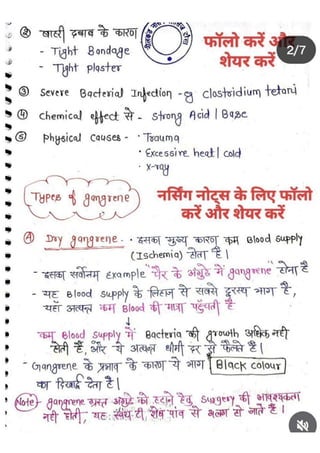 ② बाहरी दबाव के कारण
- Tight Bandage
- Tight plaster
फॉलो करें और
शेयर करें
2/7
③ Severe Bacterial Infection - eg Clostridium tetani
④ Chemical effect से - Strong Acid | Base
⑤ Physical Causes - • Trauma
• Excessive heat | cold
• x-ray
Types of gangrene
नर्सिंग नोट्स के लिए फॉलो
करें और शेयर करें
Ⓐ Dry gangrene - • इसका मुख्य कारण कम Blood supply
(Ischemia) होता है।
- इसका सर्वोत्तम Example "पैर के अंगुठे में gangrene" होना है
- यह Blood supply के लिहाज से सबसे दूरस्थ भाग है,
यहाँ अत्यन्त कम Blood की मात्रा पहुँचती है
कम Blood supply में Bacteria की growth अधिक नहीं
होती है, और ये अत्यन्त धीमी दर से फैलते है।
- Gangrene के प्रभाव के कारण ये भाग Black colour
का दिखाई देता है।
Note - gangrene ग्रस्त अंगुठे को हटाने हेतु surgery की आवश्यकता
नहीं होती, यह स्वयं ही शेष पांव से अलग हो जाते है।